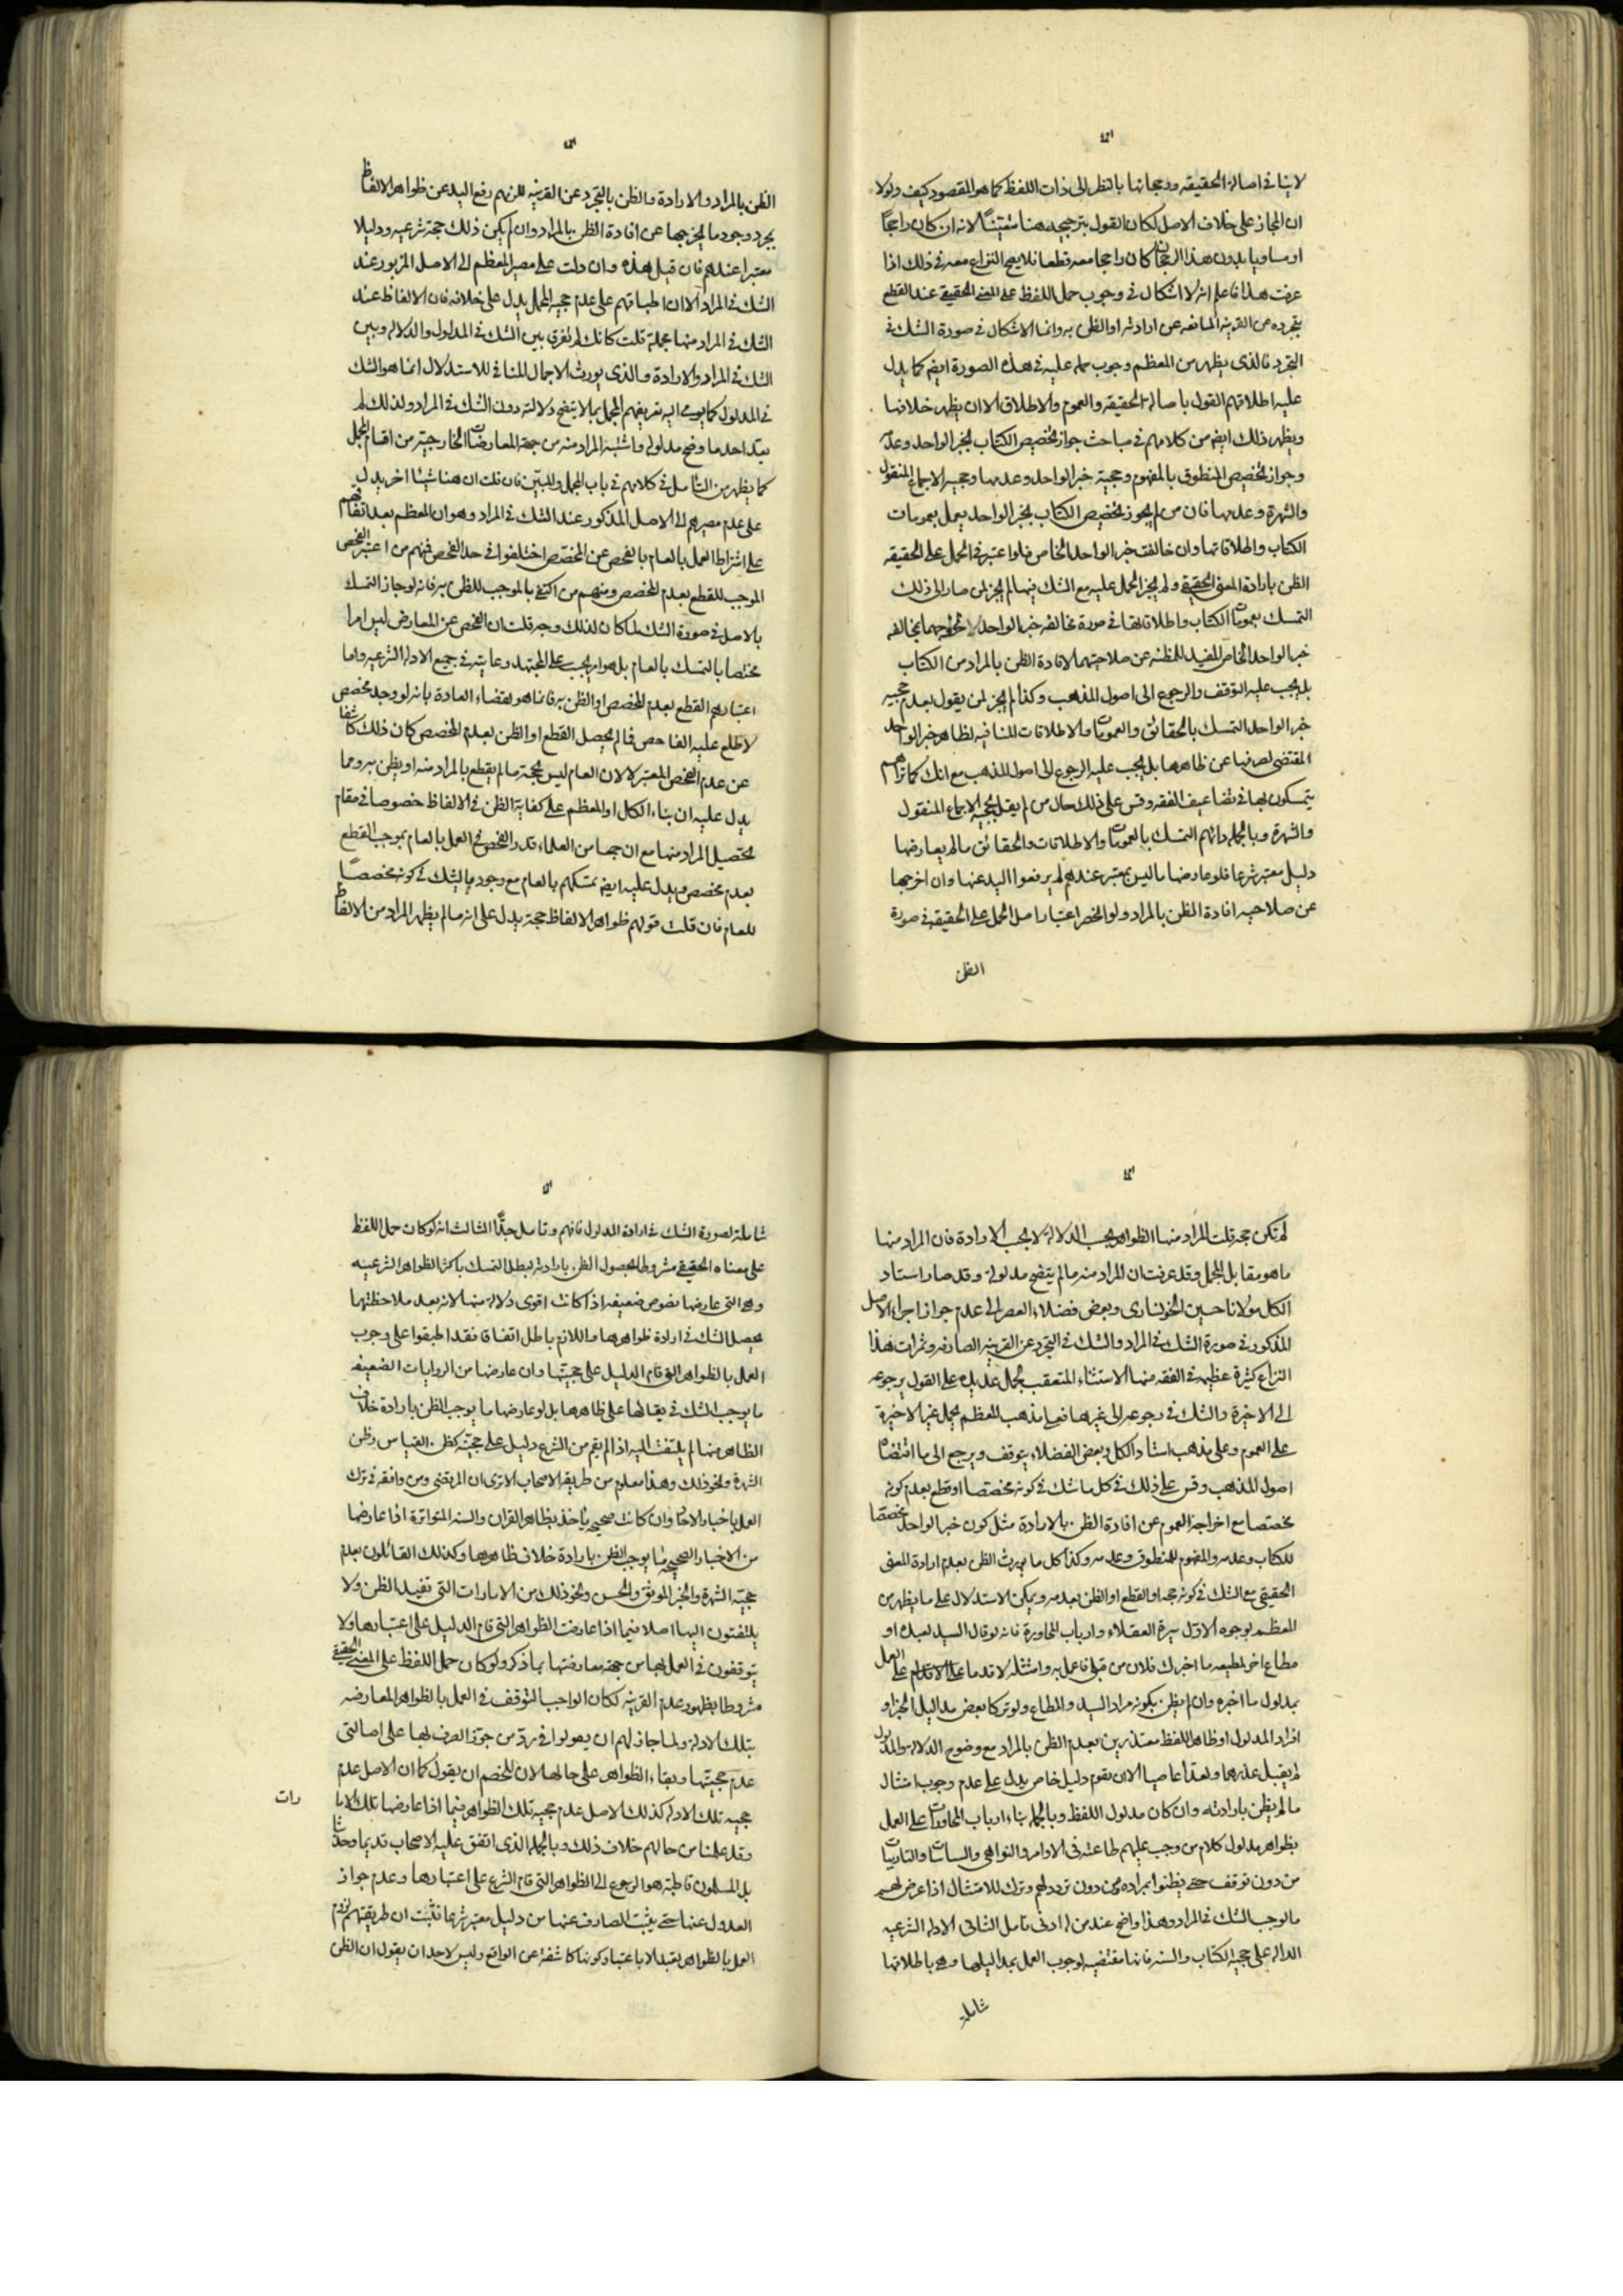 لاينافى اصالة الحقيقه ورجحانها بالنظر الى ذات اللفظ كما هو المقصود كيف ولولا
ان المجاز على خلاف الاصل لكان القول بترجيحه هنا متقينًا لانه ان كان راجحًا
او مساويا بدون هذا الرجحان كان راجحا معه قطعا فلا يصح النزاع معه فى ذلك اذا
عرفت هذا فاعلم انه لا اشكال فى وجوب حمل اللفظ على المعنى الحقيقى عند القطع
بتجرده عن القرينه المانعه عن ارادته او الظن به وانما الاشكال فى صورة الشك فى
التجرد فالذى يظهر من المعظم وجوب حمله عليه فى هذه الصورة ايضم كما يدل
عليه اطلاقهم القول باصالة الحقيقه والعموم والاطلاق الا ان يظهر خلافها
ويظهر ذلك ايضم من كلامهم فى مباحث جواز تخصيص الكتاب بخبر الواحد وعدمه
وجواز تخصيص المنطوق بالمفهوم وحجية خبر الواحد وعدمها وحجيه الاجماع المنقول
والشهرة وعدمها فان من لم يجوز تخصيص الكتاب بخبر الواحد يعمل بعمومات
الكتاب واطلاقاتها وان خالفت خبر الواحد الخاص فلو اعتبر فى الحمل على الحقيقه
الظن بارادة المعنى الحقيقى ولم يجز الحمل عليه مع الشك فيها لم يجز لمن صار الى ذلك
التمسك بعمومات الكتاب واطلاقاتها فى صورة مخالفه خبر الواحد لخروجهما بمخالفه
خبر الواحد الخاص المفيد للمظنه عن صلاحيتهما لافادة الظن بالمراد من الكتاب
بل يجب عليه التوقف والرجوع الى اصول المذهب وكذا لم يجز لمن يقول بعدم حجيه
خبر الواحد التمسك بالحقائق والعمومات والاطلاقات المنافيه لظاهر خبر الواحد
المقتضى لصرفها عن ظاهرها بل يجب عليه الرجوع الى اصول المذهب مع انك كما تراهم
يتمسكون بها فى تضاعيف الفقه وقس على ذلك حال من لم يقل بحجيه الاجماع المنقول
والشهرة وبالجمله دائهم التمسك بالعمومات والاطلاقات والحقائق ما لم يعارضها
دليل معتبر شرعا فلو عارضها ما ليس بمعتبر عندهم لم يرفعوا اليد عنها وان اخرجها
عن صلاحيه افادة الظن بالمراد ولو انحصر اعتبار اصل الحمل على الحقيقه فى صورة
الظن
الظن بالمراد والارادة والظن بالتجرد عن القرينه للزمهم رفع اليد عن ظواهر الالفاظ
بمجرد وجود ما يخرجها عن افادة الظن بالمراد وان لم يكن ذلك حجة شرعيه ودليلا
معتبرا عندهم فان قيل هذه وان دلت على مصير المعظم الى الاصل المزبور عند
الشك فى المراد الا ان اطباقهم على عدم حجيه المجمل يدل على خلافه فان الالفاظ عند
الشك فى المراد منها مجملة قلت كانك لم تفرق بين الشك فى المدلول والدلاله وبين
الشك فى المراد والارادة والذى يورث الاجمال المنافى للاستدلال انما هو الشك
فى المدلول كما يومى اليه تعريفهم المجمل بما لا يتضح دلالته دون الشك فى المراد ولذلك لم
يعد احد ما وضح مدلوله واشتبه المراد منه من جهة المعارضات الخارجية من اقسام المجمل
كما يظهر من التامل فى كلامهم فى باب المجمل والمبين فان قلت ان هنا شيئا اخر يدل
على عدم مصيرهم الى الاصل المذكور عند الشك فى المراد وهو ان المعظم بعد اتفاقهم
على اشتراط العمل بالعام بالفحص عن المخصص اختلفوا فى حد الفحص فمنهم من اعتبر الفحص
الموجب للقطع بعدم المخصص ومنهم من اكتفى بالموجب للظن به فانه لو جاز التمسك
بالاصل فى صورة الشك لما كان لذلك وجه قلت ان الفحص عن المعارض ليس امرا
مختصا بالتمسك بالعام بل هو امر يجب على المجتهد رعايته فى جميع الادله الشرعيه واما
اعتبارهم القطع بعدم المخصص او الظن به فانما هو لقضاء العادة بانه لو وجد مخصص
لاطلع عليه الفاحص فما لم يحصل القطع او الظن بعدم المخصص كان ذلك كاشفا
عن عدم الفحص المعتبر لا لان العام ليس بحجة ما لم يقطع بالمراد منه او يظن به ومما
يدل عليه ان بناء الكل او المعظم على كفاية الظن فى الالفاظ خصوصا فى مقام
تحصيل المراد منها مع ان جمعا من العلماء قدر الفحص فى العمل بالعام بموجب القطع
بعدم مخصص ويدل عليه ايضم تمسكهم بالعام مع وجود ما يشك فى كونه مخصصًا
للعام فان قلت قولهم ظواهر الالفاظ حجة يدل على انه ما لم يظهر المراد من الالفاظ
لم تكن حجة قلت المراد منها الظواهر بحسب الدلالة لا بحسب الارادة فان المراد منها
ما هو مقابل المجمل وقد عرفت ان المراد منه ما لم يتضح مدلوله وقد صار استاد
الكل مولانا حسين الخونسارى وبعض فضلاء العصر الى عدم جواز اجراء الاصل
المذكور فى صورة الشك فى المراد والشك فى التجرد عن القرينه الصارفه وثمرات هذا
النزاع كثيرة عظيمه فى الفقه منها الاستثناء المتعقب لجمل عديده على القول برجوعه
الى الاخيرة والشك فى رجوعه الى غيرها فعلى مذهب المعظم يحمل غير الاخيرة
على العموم وعلى مذهب استاد الكل وبعض الفضلاء يتوقف ويرجع الى ما اقتضاه
اصول المذهب وقس على ذلك فى كل ما شك فى كونه مخصصا او قطع بعدم كونه
مخصصا مع اخراجه العموم عن افادة الظن بالارادة مثل كون خبر الواحد مخصصا
للكتاب وعدمه والمفهوم للمنطوق وعدمه وكذا كل ما يورث الظن بعدم ارادة المعنى
الحقيقى مع الشك فى كونه حجه او القطع او الظن بعدمه ويمكن الاستدلال على ما يظهر من
المعظم بوجوه الاول سيرة العقلاء وارباب المحاورة فانه لو قال السيد لعبده او
مطاع اخر لمطيعه ما اخبرك فلان من قبلى فاعمل به وامتثله لاقدما على الاقدام على العمل
بمدلول ما اخبره وان لم يظن بكونه مراد السيد والمطاع ولو تركا بعض مداليل الخبر او
افراد المدلول او ظاهر اللفظ معتذرين بعدم الظن بالمراد مع وضوح الدلاله والمدلول
لم يقبل عذرهما ولعدا عاصيا الا ان يقوم دليل خاص يدل على عدم وجوب امتثال
ما لم يظن بارادته وان كان مدلول اللفظ وبالجمله بناء ارباب المحاورات على العمل
بظواهر مدلول كلام من وجب عليهم طاعته فى الاوامر والنواهى والسياسات والتاديبات
من دون توقف حتى يظنوا بمراده من دون تردد لهم وترك للامتثال اذا عرض لهم
ما يوجب الشك فى المراد وهذا واضح عند من له ادنى تامل الثانى الادله الشرعيه
الداله على حجية الكتاب والسنه فانها مقتضيه لوجوب العمل بمداليلها وهى باطلاقها
شاملة
شاملة لصورة الشك فى ارادة المدلول فافهم وتامل جدًّا الثالث انه لو كان حمل اللفظ
على معناه الحقيقى مشروطا بحصول الظن بارادته لبطل التمسك باكثر الظواهر الشرعيه
وهى التى عارضها نصوص ضعيفه اذا كانت اقوى دلاله منها لانه بعد ملاحظتها
يحصل الشك فى ارادة ظواهرها واللازم باطل اتفاقا فقد اطبقوا على وجوب
العمل بالظواهر التى قام الدليل على حجيتها وان عارضها من الروايات الضعيفه
ما يوجب الشك فى بقائها على ظاهرها بل لو عارضها ما يوجب الظن بارادة خلاف
الظاهر منها لم يلتفت اليه اذا لم يقم من الشرع دليل على حجيته كظن القياس وظن
الشهرة ونحو ذلك وهذا معلوم من طريقه الاصحاب الا ترى ان المرتضى ومن وافقه فى ترك
العمل باخبار الاحاد وان كانت صحيحه ياخذ بظاهر القران والسنه المتواترة اذا عارضها
من الاخبار الصحيحه ما يوجب الظن بارادة خلاف ظاهرها وكذلك القائلون بعدم
حجيه الشهرة والخبر الموثق والحسن ونحو ذلك من الامارات التى تفيد الظن ولا
يلتفتون اليها اصلا فيما اذا عارضت الظواهر التى قام الدليل على اعتبارها ولا
يتوقفون فى العمل بها من جهة معارضتها بما ذكر ولو كان حمل اللفظ على المعنى الحقيقى
مشروطا بظهور عدم القرينه لكان الواجب التوقف فى العمل بالظواهر المعارضه
بتلك الادله ولما جاز لهم ان يعولوا فى رد من جوز الصرف بها على اصالتى
عدم حجيتها وبقاء الظواهر على حالها لان للخصم ان يقول كما ان الاصل عدم
حجيه تلك الادله كذلك الاصل عدم حجيه تلك الظواهر فيما اذا عارضها تلك الاما
رات
وقد علمنا من حالهم خلاف ذلك وبالجمله الذى اتفق عليه الاصحاب قديما وحديثا
بل المسلمون قاطبة هو الرجوع الى الظواهر التى قام الشرع على اعتبارها وعدم جواز
العدول عنها حتى يثبت الصارف عنها من دليل معتبر شرعا فثبت ان طريقتهم لزوم
العمل بالظواهر تعبدا لا باعتبار كونها كاشفة عن الواقع وليس لاحد ان يقول ان الظن